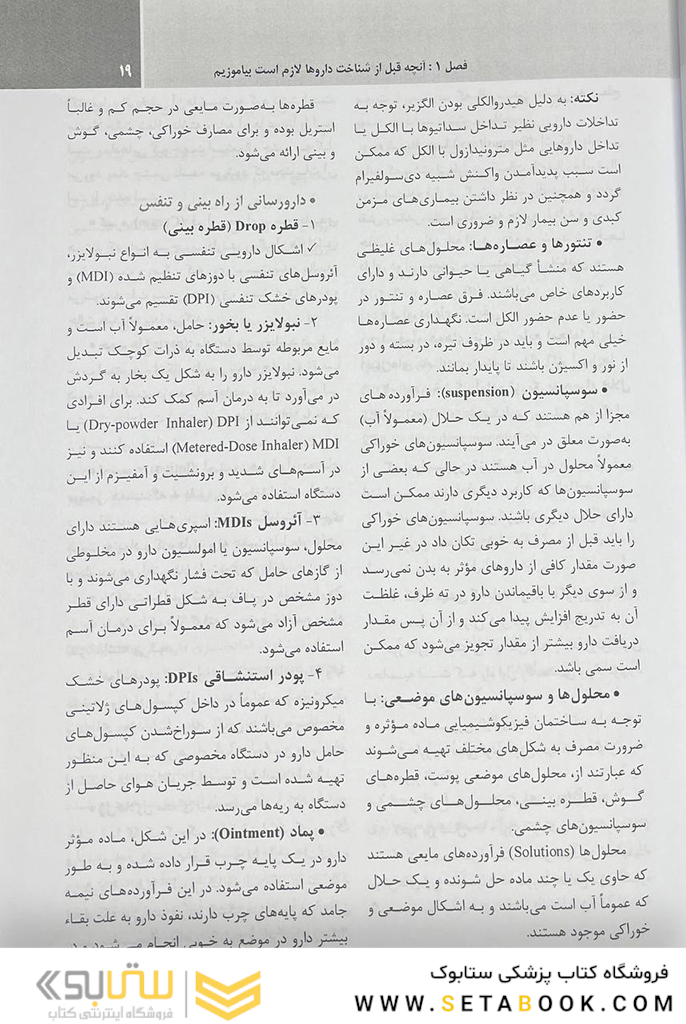 فصل ۱ : آنچه قبل از شناخت داروها لازم است بیاموزیم
۱۹
نکته: به دلیل هیدروالکلی بودن الگزیر، توجه به
تداخلات دارویی نظیر تداخل سداتیوها با الکل یا
تداخل داروهایی مثل مترونیدازول با الکل که ممکن
است سبب پدیدآمدن واکنش شبیه دی‌سولفیرام
گردد و همچنین در نظر داشتن بیماری‌های مزمن
کبدی و سن بیمار لازم و ضروری است.
• تنتورها و عصاره‌ها: محلول‌های غلیظی
هستند که منشأ گیاهی یا حیوانی دارند و دارای
کاربردهای خاص می‌باشند. فرق عصاره و تنتور در
حضور یا عدم حضور الکل است. نگهداری عصاره‌ها
خیلی مهم است و باید در ظروف تیره، در بسته و دور
از نور و اکسیژن باشند تا پایدار بمانند.
• سوسپانسیون (suspension): فرآورده‌های
مجزا از هم هستند که در یک حلال (معمولاً آب)
به‌صورت معلق در می‌آیند. سوسپانسیون‌های خوراکی
معمولاً محلول در آب هستند در حالی که بعضی از
سوسپانسیون‌ها که کاربرد دیگری دارند ممکن است
دارای حلال دیگری باشند. سوسپانسیون‌های خوراکی
را باید قبل از مصرف به خوبی تکان داد در غیر این
صورت مقدار کافی از داروهای مؤثر به بدن نمی‌رسد
و از سوی دیگر با باقیماندن دارو در ته ظرف، غلظت
آن به تدریج افزایش پیدا می‌کند و از آن پس مقدار
دریافت دارو بیشتر از مقدار تجویز می‌شود که ممکن
است سمی باشد.
• محلول‌ها و سوسپانسیون‌های موضعی: با
توجه به ساختمان فیزیکوشیمیایی ماده مؤثره و
ضرورت مصرف به شکل‌های مختلف تهیه می‌شوند
که عبارتند از، محلول‌های موضعی پوست، قطره‌های
گوش، قطره بینی، محلول‌های چشمی و
سوسپانسیون‌های چشمی.
محلول‌ها (Solutions) فرآورده‌های مایعی هستند
که حاوی یک یا چند ماده حل شونده و یک حلال
که عموماً آب است می‌باشند و به اشکال موضعی و
خوراکی موجود هستند.
قطره‌ها به‌صورت مایعی در حجم کم و غالباً
استریل بوده و برای مصارف خوراکی، چشمی، گوش
و بینی ارائه می‌شود.
• دارورسانی از راه بینی و تنفس
۱- قطره Drop (قطره بینی)
✓ اشکال دارویی تنفسی به انواع نبولایزر،
آئروسل‌های تنفسی با دوزهای تنظیم شده (MDI) و
پودرهای خشک تنفسی (DPI) تقسیم می‌شوند.
۲- نبولایزر یا بخور: حامل، معمولاً آب است و
مایع مربوطه توسط دستگاه به ذرات کوچک تبدیل
می‌شود. نبولایزر دارو را به شکل یک بخار به گردش
در می‌آورد تا به درمان آسم کمک کند. برای افرادی
که نمی‌توانند از DPI (Dry-powder Inhaler) یا
MDI (Metered-Dose Inhaler) استفاده کنند و نیز
در آسم‌های شدید و برونشیت و آمفیزم از این
دستگاه استفاده می‌شود.
۳- آئروسل MDIs: اسپری‌هایی هستند دارای
محلول، سوسپانسیون یا امولسیون دارو در مخلوطی
از گازهای حامل که تحت فشار نگهداری می‌شوند و با
دوز مشخص در پاف به شکل قطراتی دارای قطر
مشخص آزاد می‌شود که معمولاً برای درمان آسم
استفاده می‌شود.
۴- پودر استنشاقی DPIs: پودرهای خشک
میکرونیزه که عموماً در داخل کپسول‌های ژلاتینی
مخصوص می‌باشند که از سوراخ‌شدن کپسول‌های
حامل دارو در دستگاه مخصوصی که به این منظور
تهیه شده است و توسط جریان هوای حاصل از
دستگاه به ریه‌ها می‌رسد.
• پماد (Ointment): در این شکل، ماده مؤثر
دارو در یک پایه چرب قرار داده شده و به طور
موضعی استفاده می‌شود. در این فرآورده‌های نیمه
جامد که پایه‌های چرب دارند، نفوذ دارو به علت بقاء
بیشتر دارو در موضع به خوبی انجام می‌شود و
فروشگاه کتاب پزشکی ستابوک
WWW.SETABOOK.COM
ستابوک
فروشگاه اینترنتی کتاب